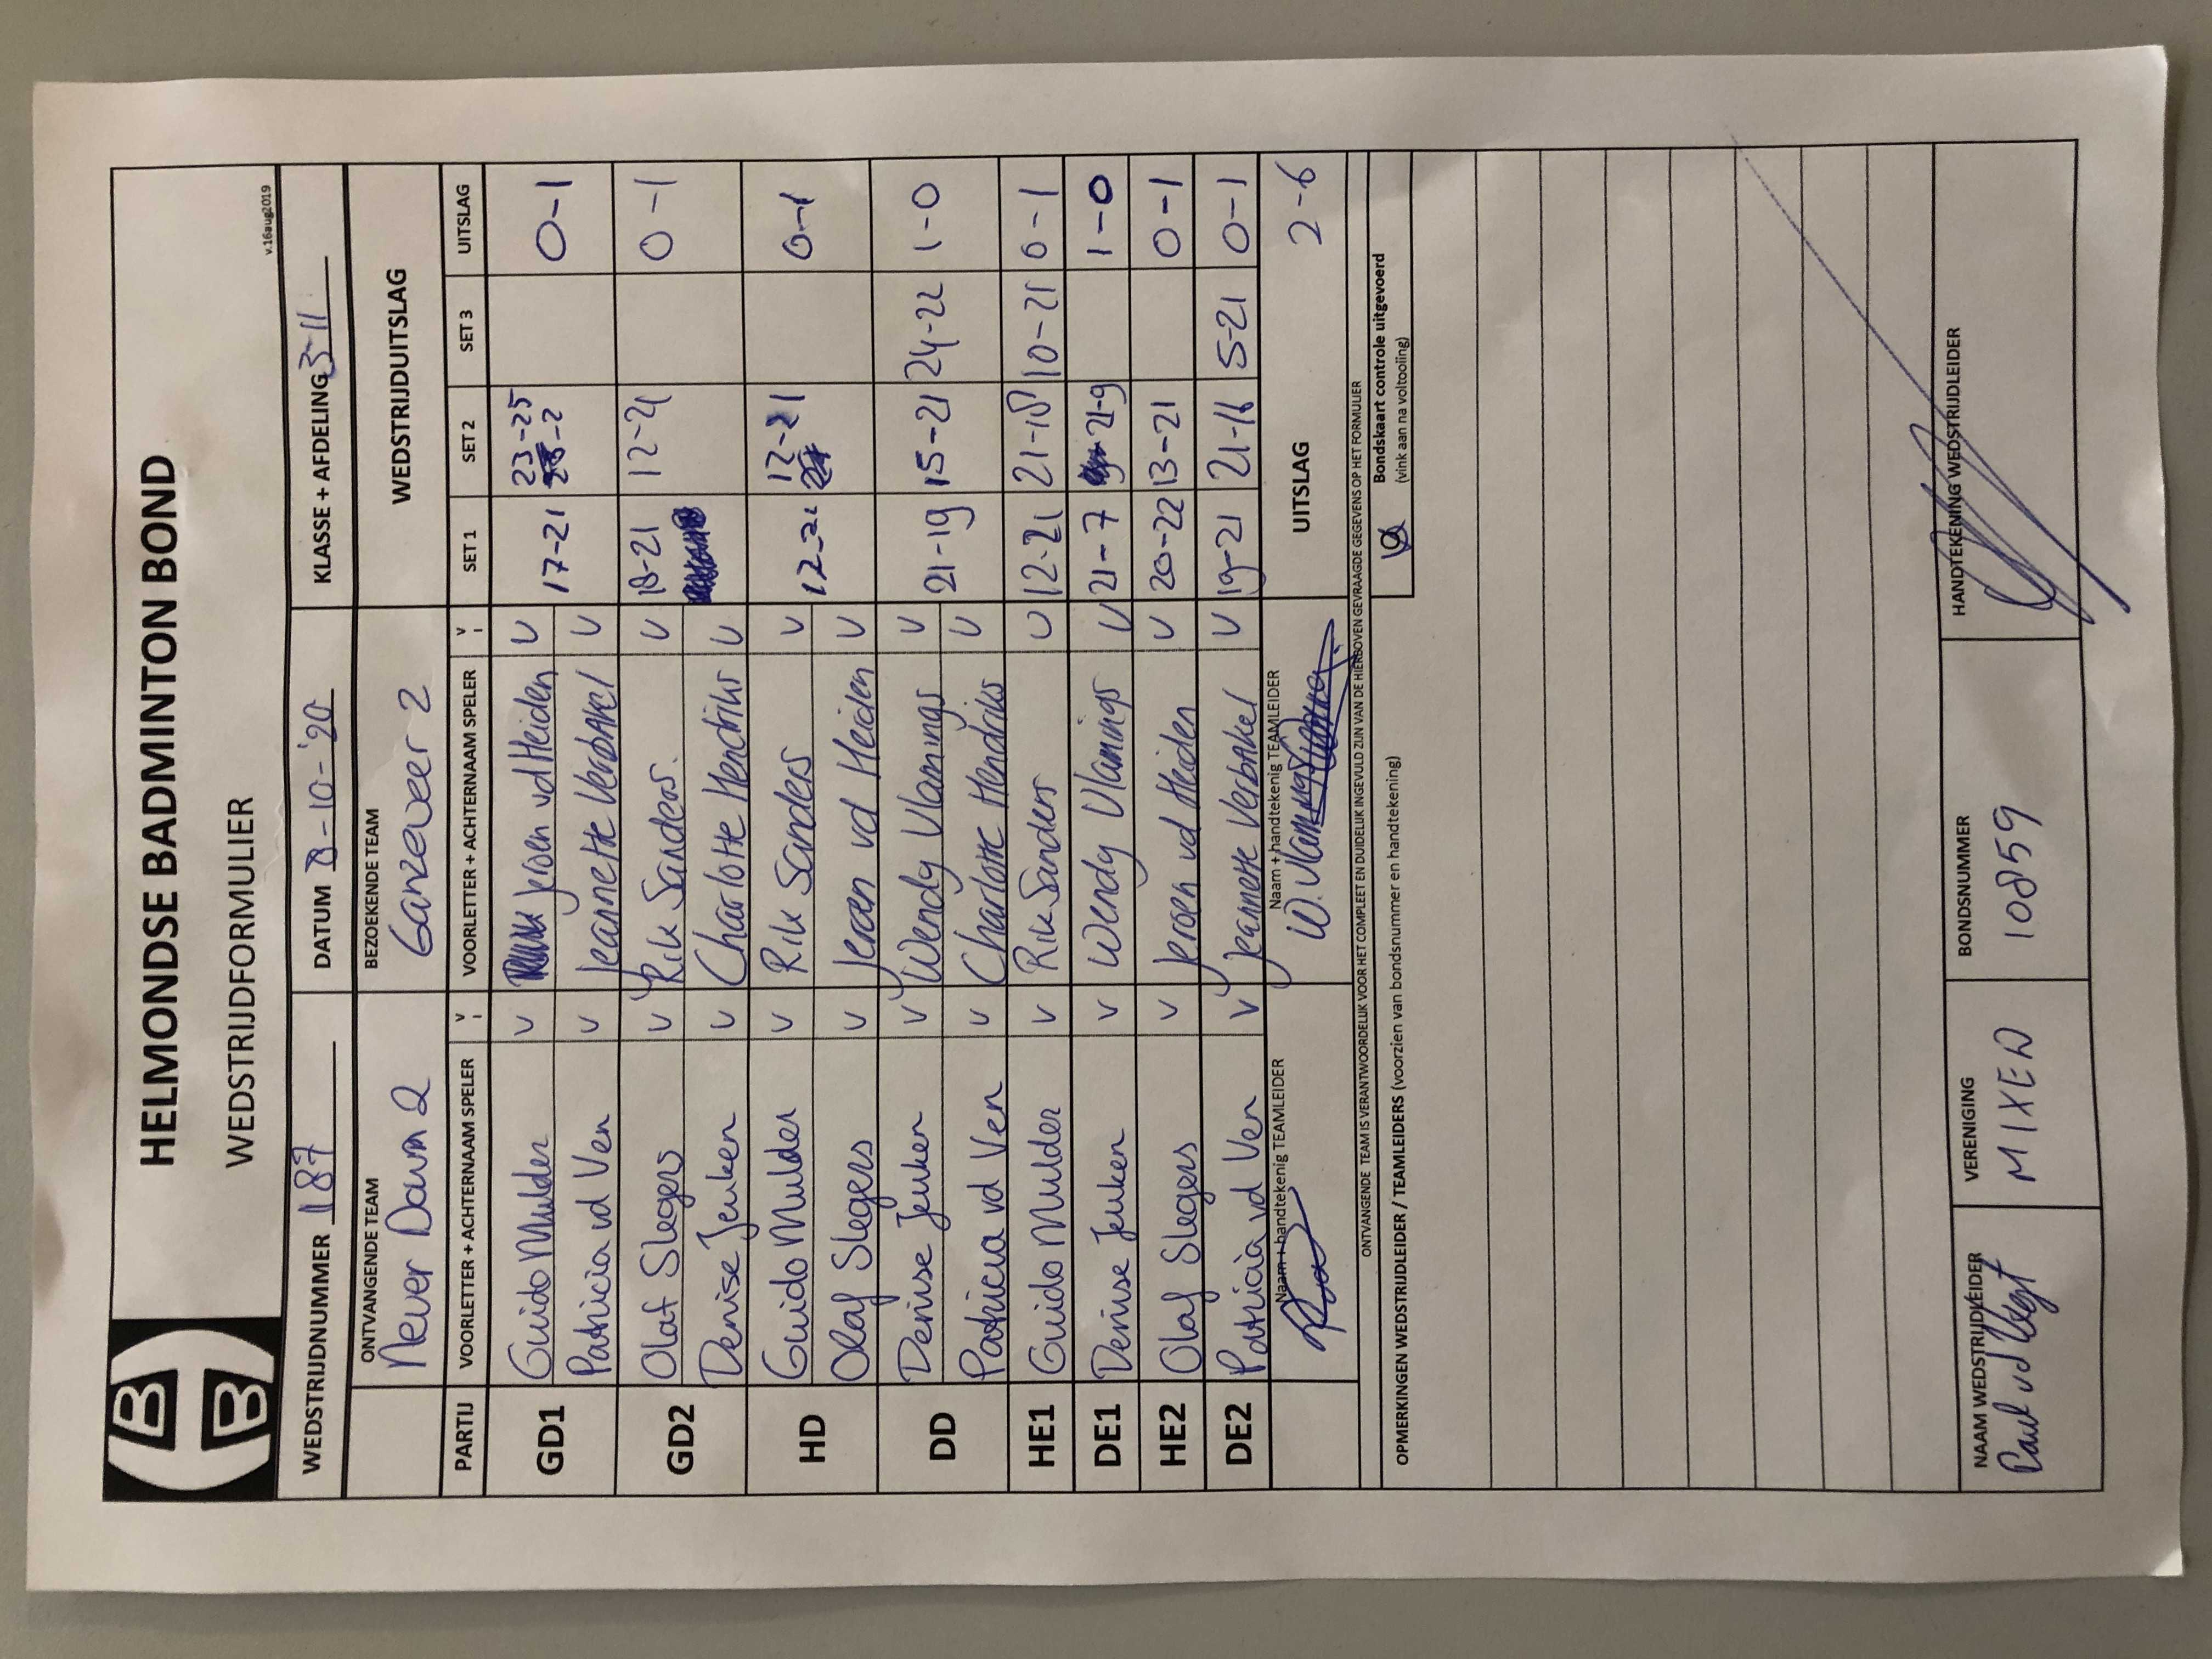 HELMONDSE BADMINTON BOND
WEDSTRIJDFORMULIER
v.16aug2019
WEDSTRIJDNUMMER 187 DATUM 8-10-'20 KLASSE + AFDELING 3-11
ONTVANGENDE TEAM BEZOEKENDE TEAM WEDSTRIJDUITSLAG
Never Down 2 Ganzeveer 2
PARTIJ VOORLETTER + ACHTERNAAM SPELER V I VOORLETTER + ACHTERNAAM SPELER V I SET 1 SET 2 SET 3 UITSLAG
GD1 Guido Mulder V Jeroen vd Heiden V 17-21 23-25 0-1
Patricia vd Ven V Jeannette Verbakel V
GD2 Olaf Slegers V Rik Sanders. V 18-21 12-21 0-1
Denise Jeuken V Charlotte Hendriks V
HD Guido Mulder V Rik Sanders V 12-21 12-21 0-1
Olaf Slegers V Jeroen vd Heiden V
DD Denise Jeuken V Wendy Vlamings V 21-19 15-21 24-22 1-0
Patricia vd Ven V Charlotte Hendriks V
HE1 Guido Mulder V Rik Sanders V 12-21 21-18 10-21 0-1
DE1 Denise Jeuken V Wendy Vlamings V 21-7 21-9 1-0
HE2 Olaf Slegers V Jeroen vd Heiden V 20-22 13-21 0-1
DE2 Patricia vd Ven V Jeannette Verbakel V 19-21 21-16 5-21 0-1
Naam + handtekenig TEAMLEIDER Naam + handtekenig TEAMLEIDER UITSLAG 2-6
W. Vlamings
ONTVANGENDE TEAM IS VERANTWOORDELIJK VOOR HET COMPLEET EN DUIDELIJK INGEVULD ZIJN VAN DE HIERBOVEN GEVRAAGDE GEGEVENS OP HET FORMULIER
Bondskaart controle uitgevoerd
(vink aan na voltooiing)
OPMERKINGEN WEDSTRIJDLEIDER / TEAMLEIDERS (voorzien van bondsnummer en handtekening)
NAAM WEDSTRIJDLEIDER VERENIGING BONDSNUMMER HANDTEKENING WEDSTRIJDLEIDER
Paul vd Vegt MIXED 10859